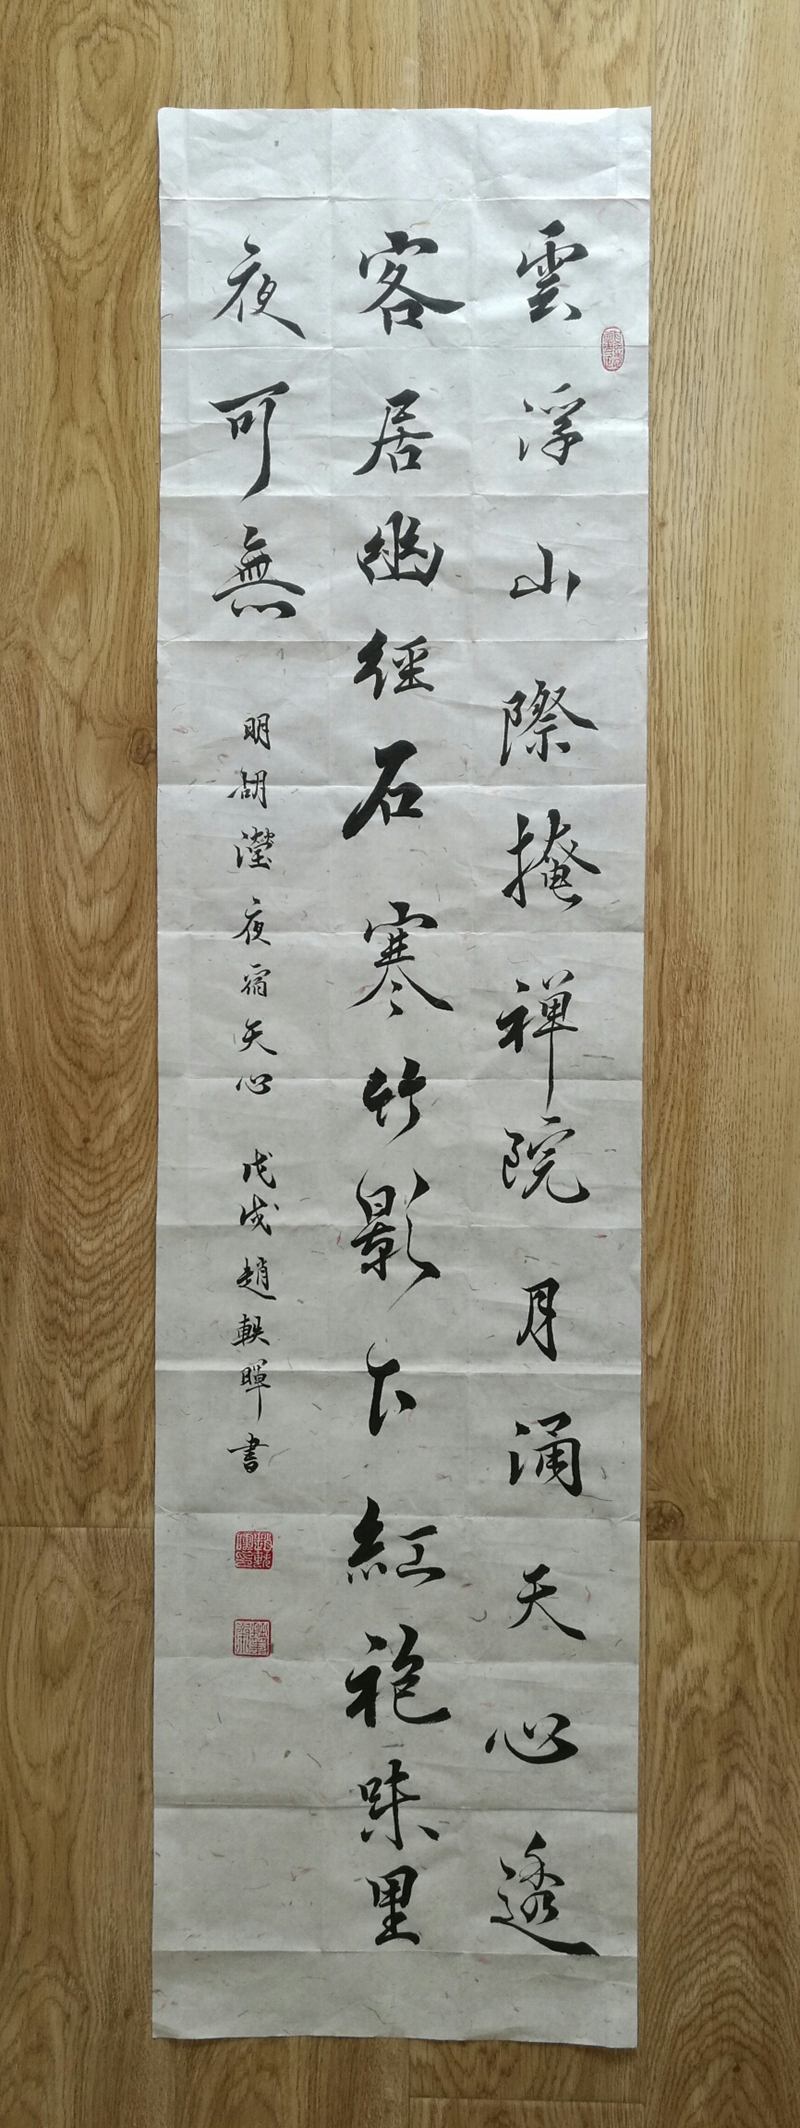 雲浮山際掩禅院月涌天心透
客居幽径石寒竹影下紅袍味里
夜可無
明胡瀅夜宿天心 戊戌趙軼暉書